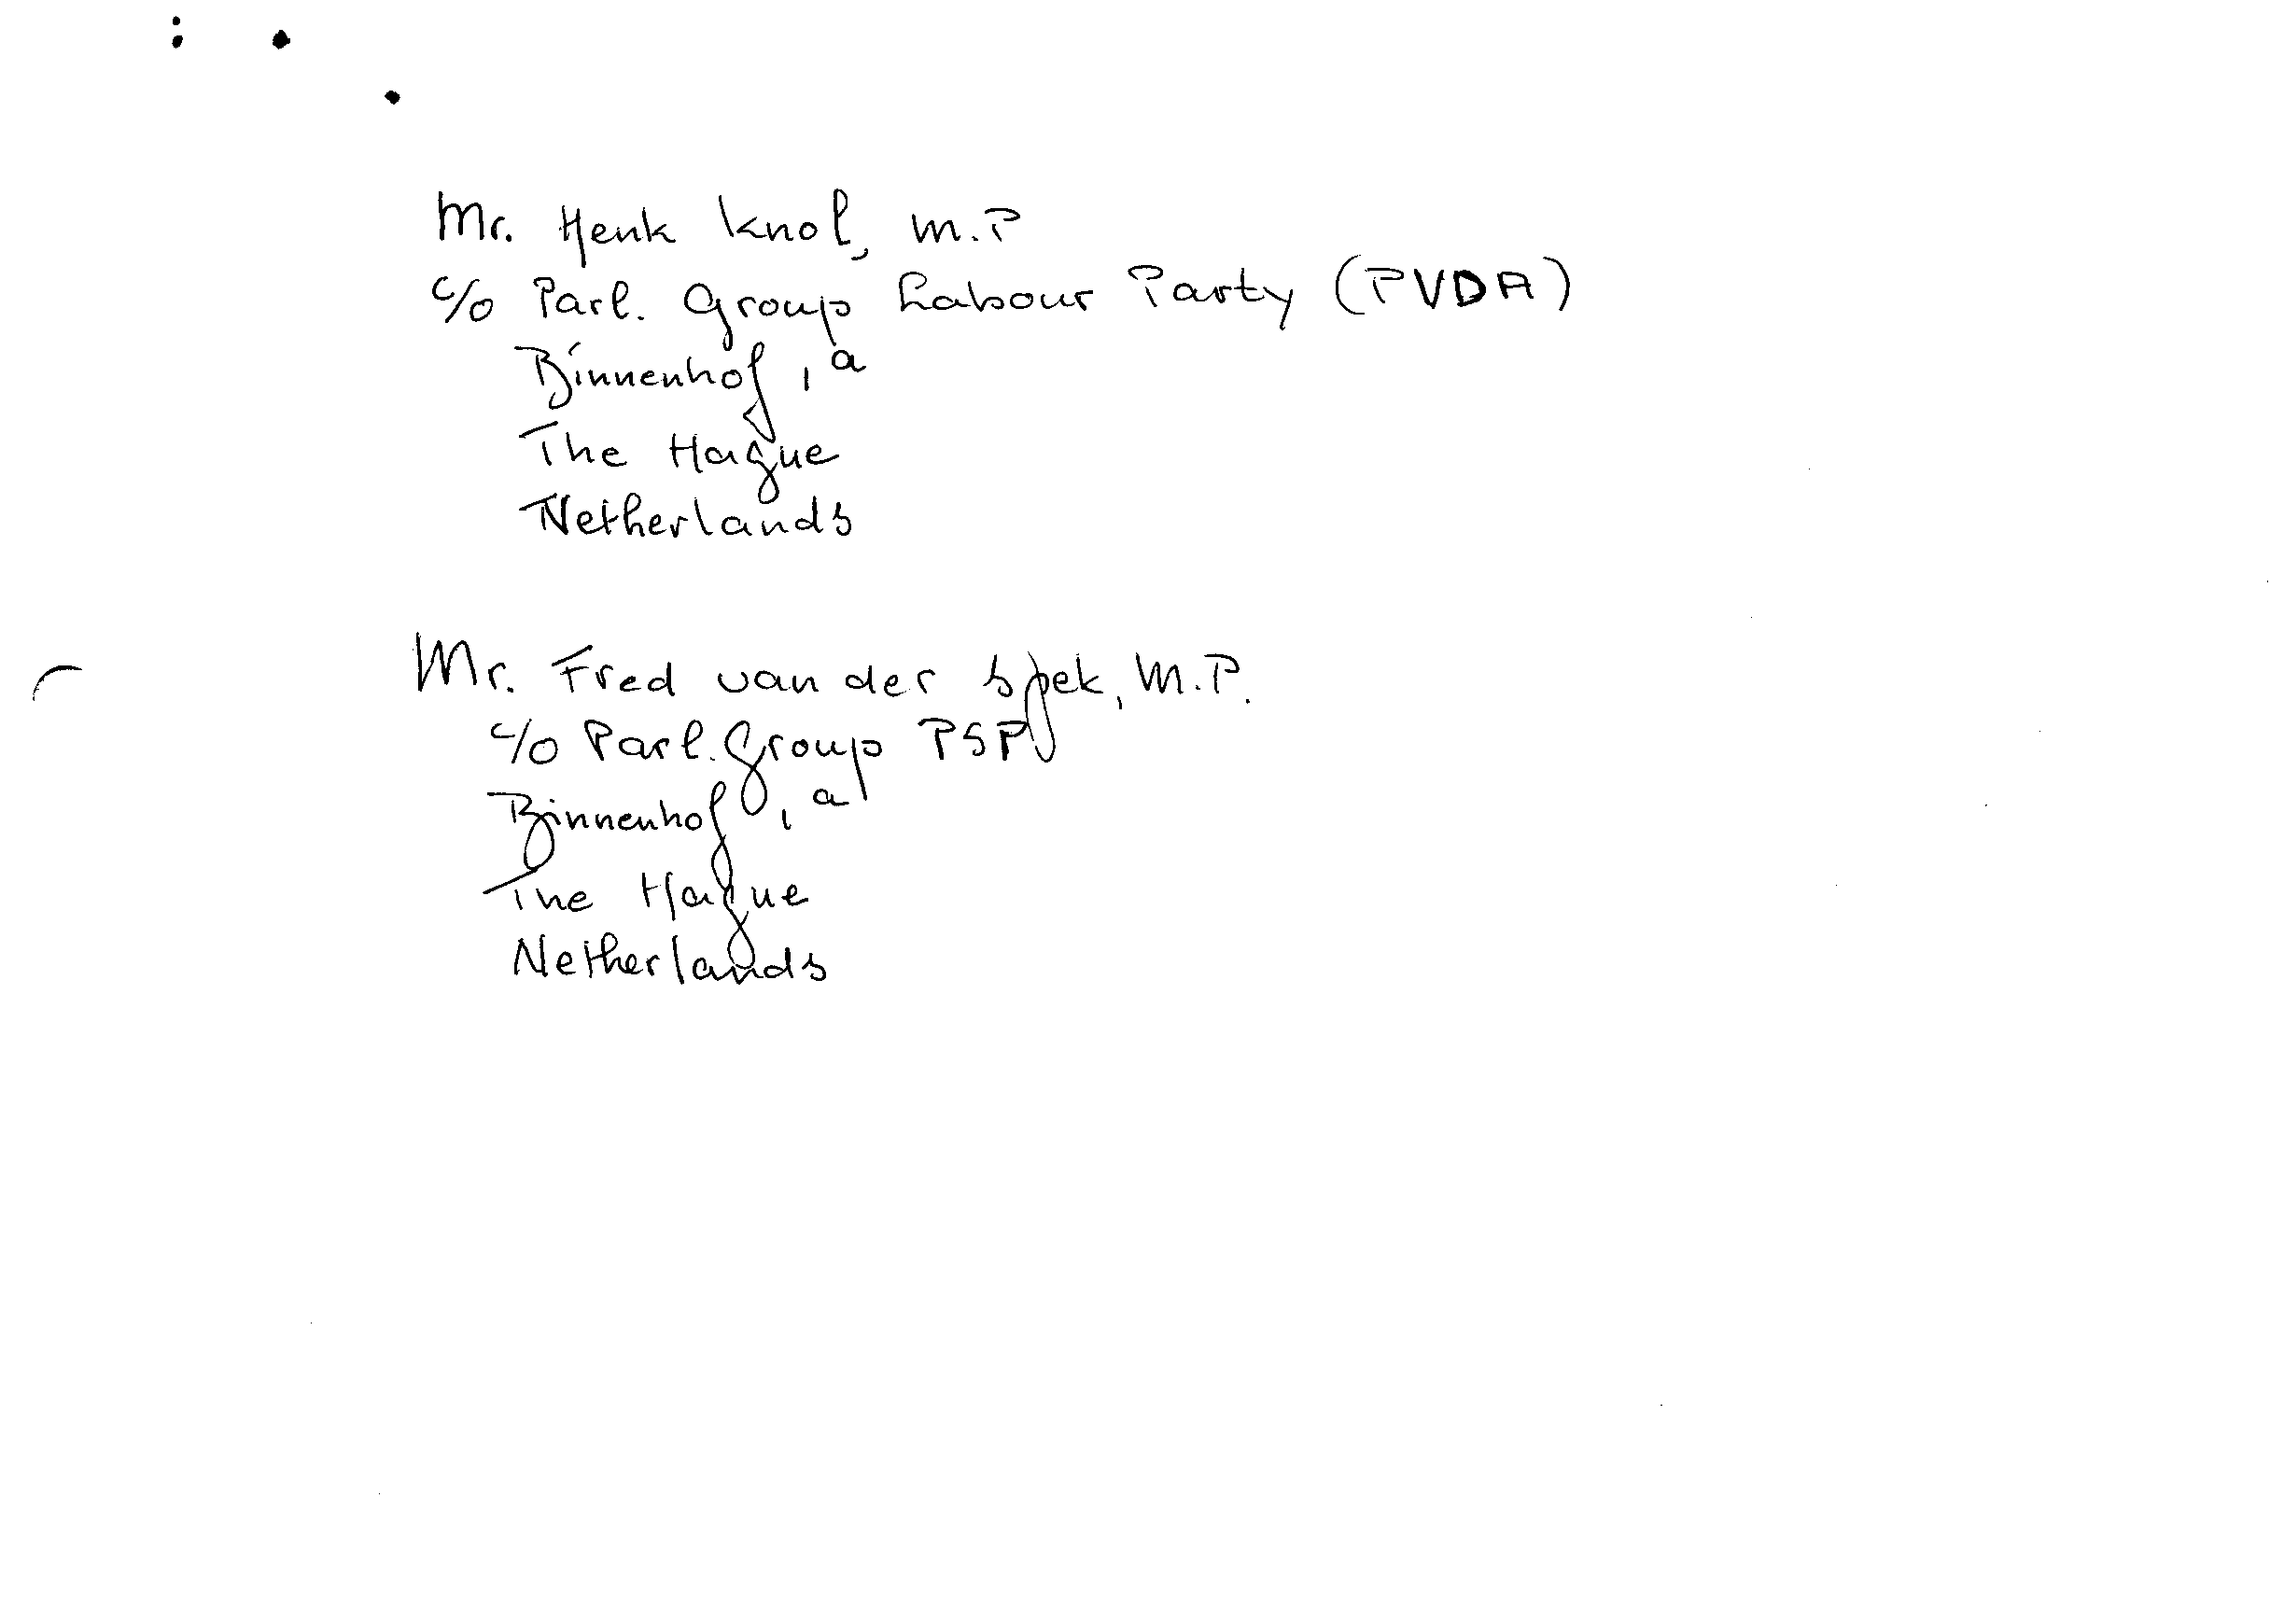 Mr. Henk Knol, M.P
c/o Parl. Group Labour Party (PVDA)
Binnenhof 1a
The Hague
Netherlands
Mr. Fred van der Spek, M.P.
c/o Parl. Group PSP
Binnenhof 1a
The Hague
Netherlands